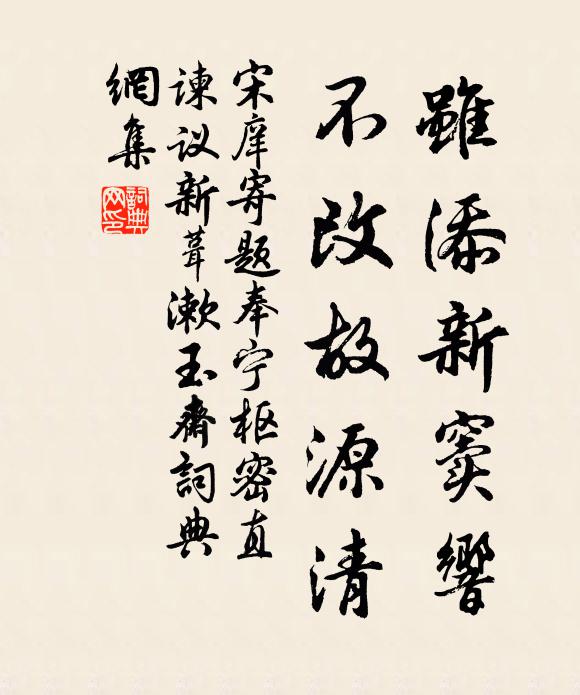 雖添新竇響
不改故源清
宋庠寄题奉宁枢密直
諫议新葺漱玉齋詞典
網集
詞典网印